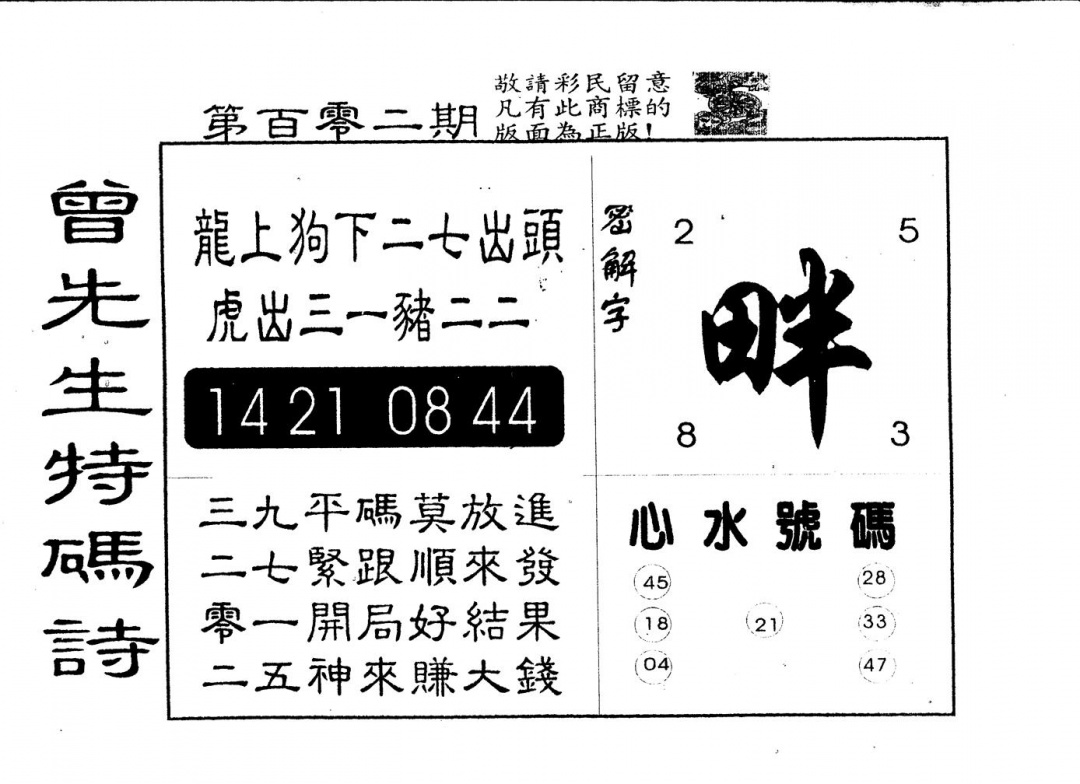 敬請彩民留意
凡有此商標的
版面為正版！
第百零二期
曾先生特碼詩
龍上狗下二七出頭
虎出三一豬二二
14 21 08 44
三九平碼莫放進
二七緊跟順來發
零一開局好結果
二五神來賺大錢
密解字
2 5
畔
8 3
心水號碼
45 28
18 21 33
04 47